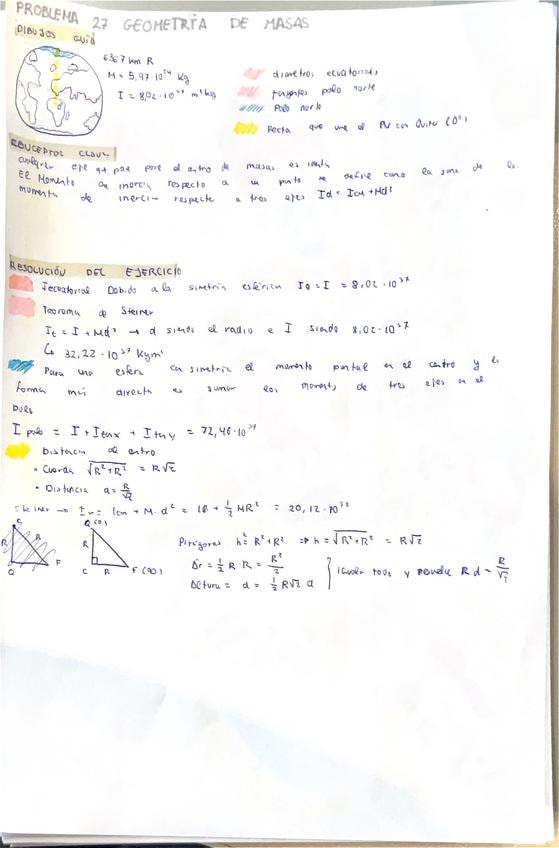 PROBLEMA 27 GEOMETRÍA DE MASAS
DIBUJOS GUÍA
6367 km R
M = 5,97·10²⁴ kg
I = 8,02·10³⁷ m² kg
diámetros ecuatoriales
tangentes polo norte
Polo norte
Recta que une el PN con Quito (0°)
CONCEPTOS CLAVE
cualquier eje que pase por el centro de masas es
El Momento de inercia respecto a un punto se define como la suma de los
momentos de inercia respecto a tres ejes Id = Icm + Md²
RESOLUCIÓN DEL EJERCICIO
Debido a la simetría esférica I₀ = I = 8,02·10³⁷
Teorema de Steiner
It = I + Md² → d siendo el radio e I siendo 8,02·10³⁷
↳ 32,22·10³⁷ Kgm²
Para una esfera con simetría el momento puntal en el centro y la
forma más directa es sumar los momentos de tres ejes en el
I polo = I + Itanx + Itany = 72,46·10³⁷
Distancia al centro
• Cuerda √R²+R² = R√2
• Distancia a = R/√2
Steiner → = Icm + M·d² = + 1/2 MR² = 20,12·10³⁷
Q (0)
R
C R F (90)
Pitágoras h² = R² + R² ⇒ h = √R²+R² = R√2
= 1/2 R·R = R²/2
Altura = d = 1/2 R√2 d
Igualar todo y resuelve d = R/√2